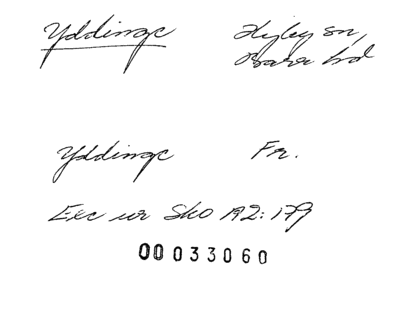 Yddinge Hyby sn,
Bara hd
Yddinge Fr.
Exc ur SkO A2: 179
00033060